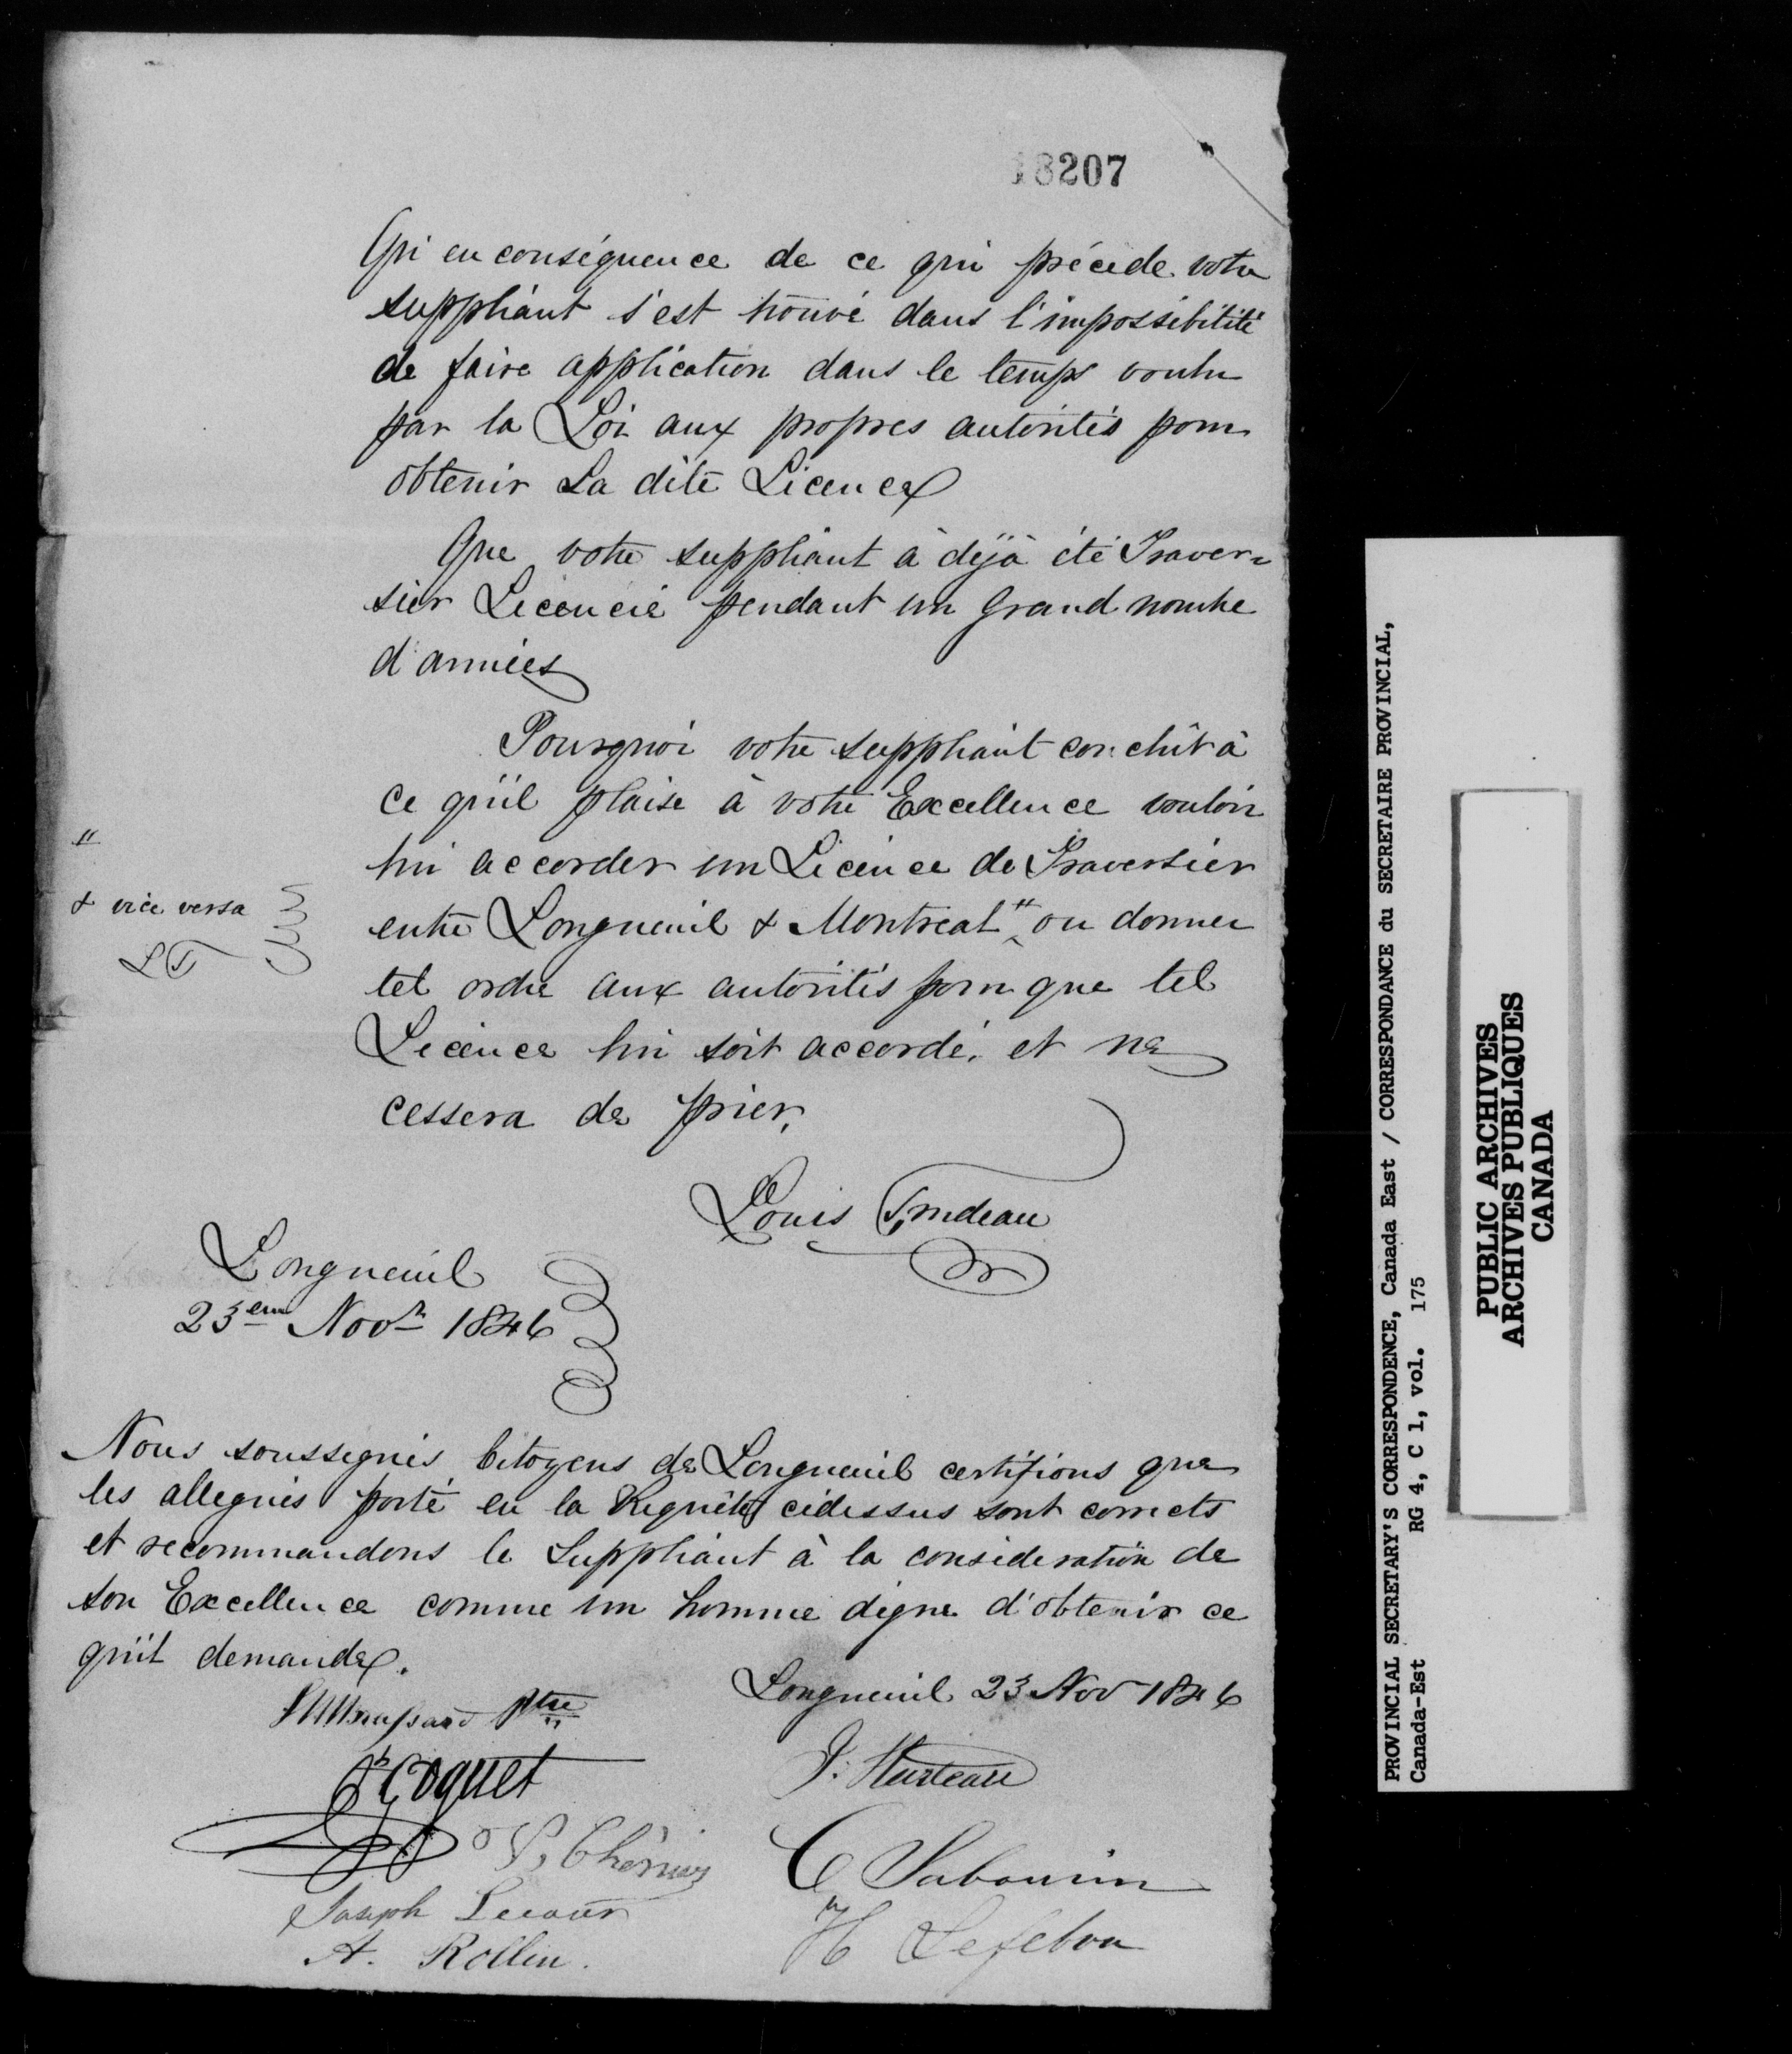 18207
Qui en conséquence de ce qui précède votre
suppliant s'est trouvé dans l'impossibilité
de faire application dans le temps voulu
par la Loi aux propres autorités pour
obtenir La dite Licence
Que votre suppliant à déjà été Traver=
sier Licencié pendant un Grand nombre
d'années
Pourquoi votre suppliant conclût à
ce qu'il plaise à votre Excellence vouloir
lui accorder un Licence de Traversier
entre Longueuil & Montreal " ou donner
"
& vice versa
LT
tel ordre aux autorités pour que tel
Licence lui soit accordé, et ne
cessera de prier,
Louis Trudeau
Longueuil
23em Novr 1846
Nous soussignés Citoyens de Longueuil certifions que
les allegués porté en la Requête cidessus sont corrects
et recommandons le Suppliant à la considération de
son Excellence comme un homme digne d'obtenir ce
qu'il demande.
Longueuil 23 Nov 1846
Ptre
Goguet
J. Hurteau
P. Chénier
C Sabourin
Joseph Lecour
H Lefebvre
A. Rollin.
PROVINCIAL SECRETARY'S CORRESPONDENCE, Canada East / CORRESPONDANCE du SECRETAIRE PROVINCIAL,
Canada-Est RG 4, C 1, vol. 175
PUBLIC ARCHIVES
ARCHIVES PUBLIQUES
CANADA